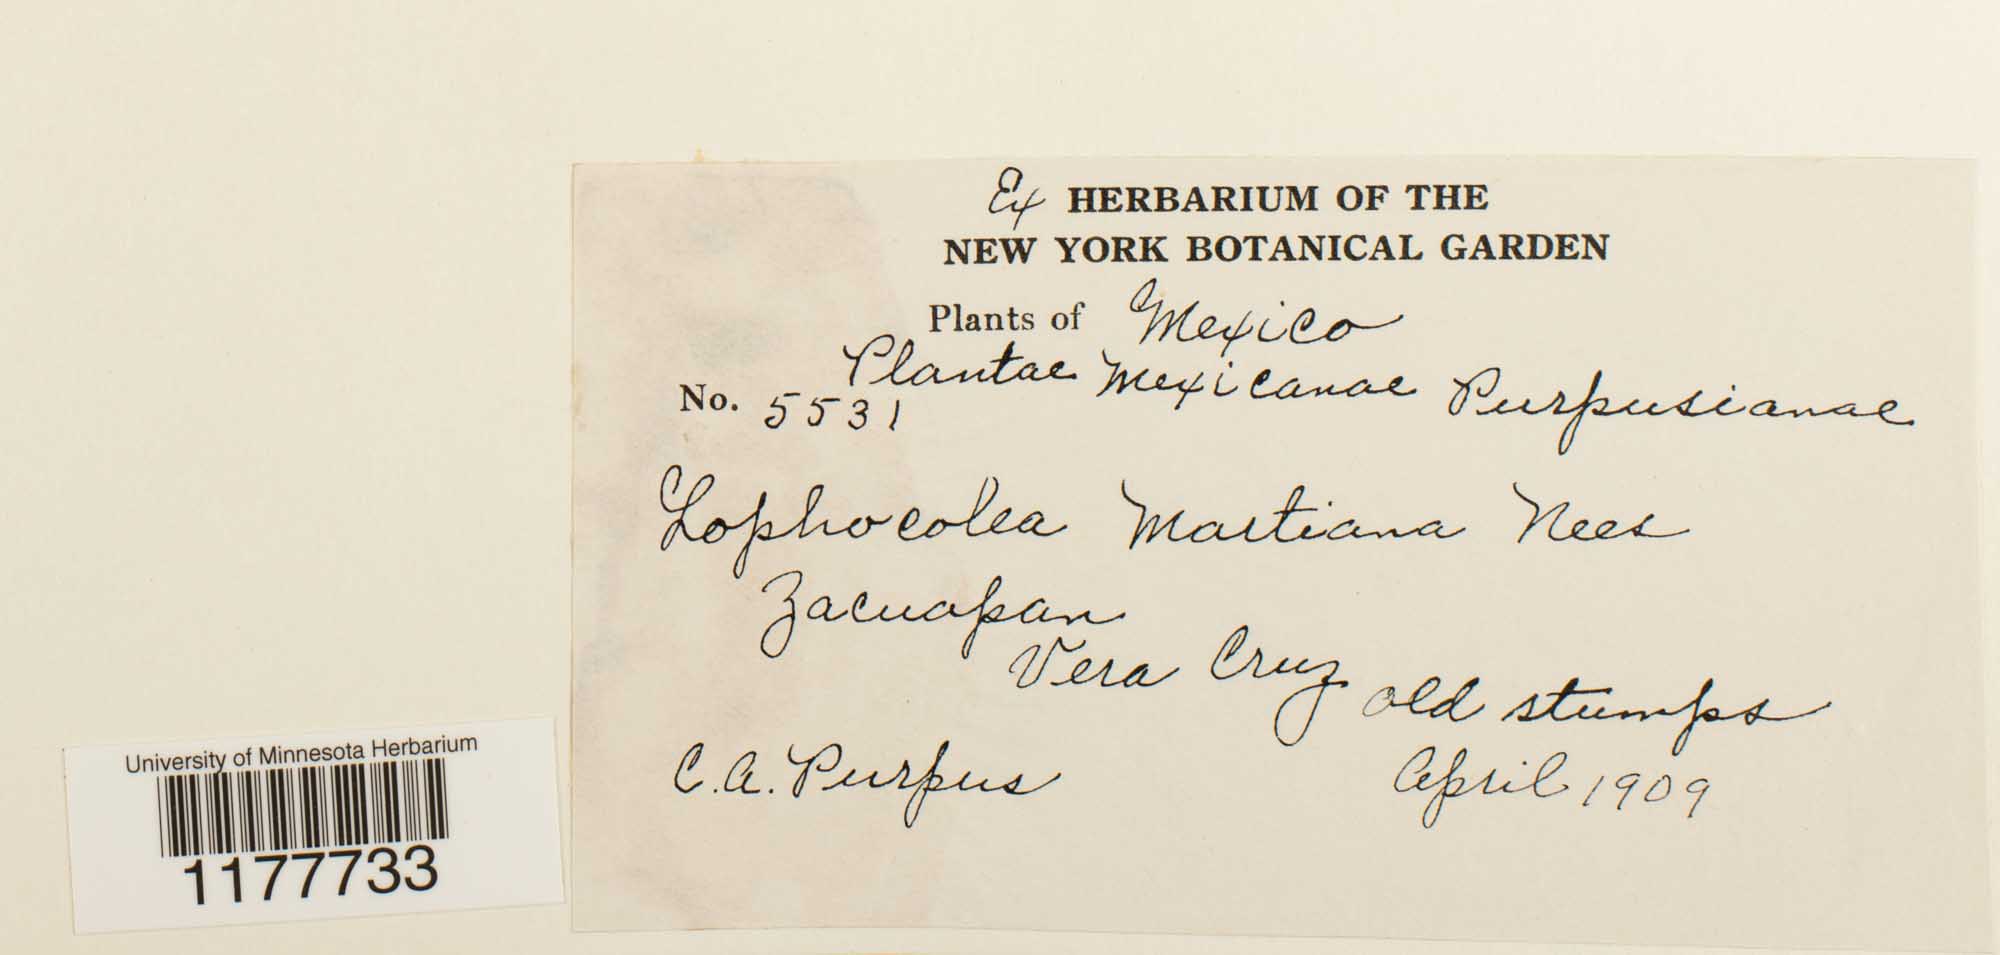 Ex HERBARIUM OF THE
NEW YORK BOTANICAL GARDEN
Plants of Mexico
Plantae Mexicanae Purpusianae
No. 5531
Lophocolea Martiana Nees
Zacuapan
Vera Cruz
old stumps
C.A. Purpus
April 1909
University of Minnesota Herbarium
1177733